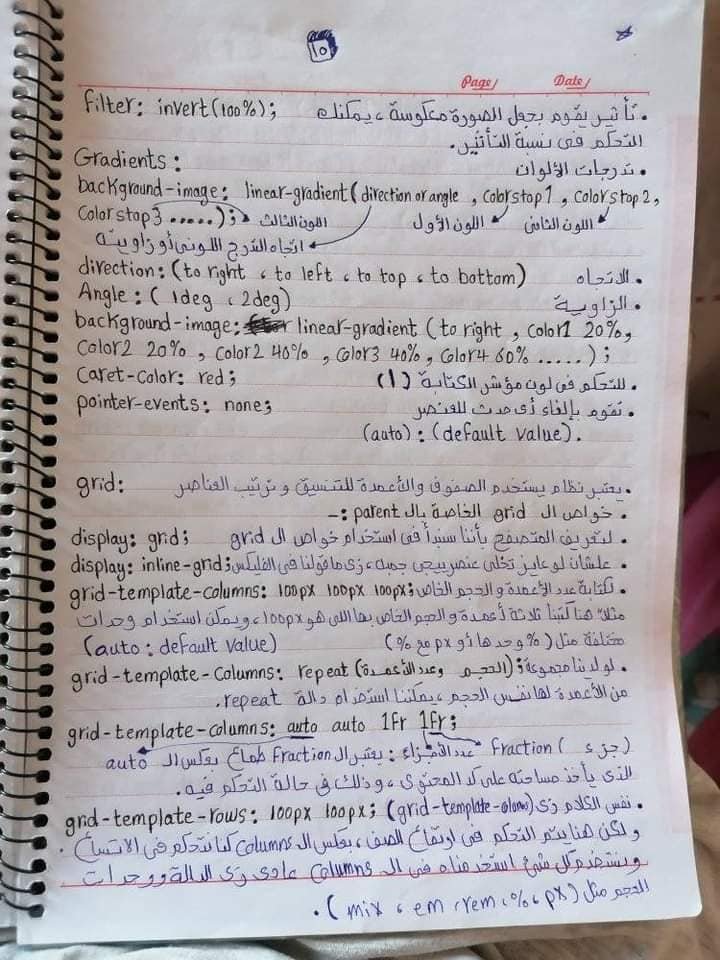 ١٥
Page/ Date/
filter: invert(100%); • تأثير يقوم بجعل الصورة معكوسة، يمكنك
التحكم فى نسبة التأثير.
Gradients: • تدرجات الألوان
background-image: linear-gradient(direction or angle, Colorstop1, Colorstop2,
Colorstop3 ......); اللون الثالث اللون الأول اللون الثانى
اتجاه التدرج اللونى أو زاويته
direction: (to right، to left، to top، to bottom) • الاتجاه
Angle: (1deg، 2deg) • الزاوية
background-image: linear-gradient (to right, Color1 20%,
Color2 20%, Color2 40%, Color3 40%, Color4 60% .....);
Caret-Color: red; • للتحكم فى لون مؤشر الكتابة (I)
pointer-events: none; • تقوم بإلغاء أى حدث للعنصر
(auto): (default value).
grid: • يعتبر نظام يستخدم الصفوف والأعمدة للتنسيق و ترتيب العناصر
• خواص ال grid الخاصة بال parent :-
display: grid; لتعريف المتصفح بأننا سنبدأ فى استخدام خواص ال grid
display: inline-grid; • علشان لو عايز تخلى عنصر ييجى جمبه، زى ماقولنا فى الفليكس
grid-template-columns: 100px 100px 100px; • لكتابة عدد الأعمدة و الحجم الخاص
مثلاً هنا كتبنا ثلاثة أعمدة و الحجم الخاص بها اللى هو 100px، ويمكن استخدام وحدات
مختلفة مثل (% وحدها أو px مع %) (auto: default value)
grid-template-Columns: repeat (الحجم وعدد الأعمدة); • لو لدينا مجموعة
من الأعمدة لها نفس الحجم، يمكننا استخدام دالة repeat.
grid-template-columns: auto auto 1fr 1fr;
(جزء) Fraction عدد الأجزاء: يعتبر ال Fraction طماع بعكس ال auto
الذى يأخذ مساحته على قد المحتوى، وذلك فى حالة التحكم فيه.
grid-template-rows: 100px 100px; • نفس الكلام زى (grid-template-columns)
و لكن هنا يتم التحكم فى ارتفاع الصف، بعكس ال Columns كنا نتحكم فى الاتساع.
ويستخدم كل شئ استخدمناه فى ال Columns عادى زى الدالة ووحدات
الحجم مثل (mix، em، rem، %، px).